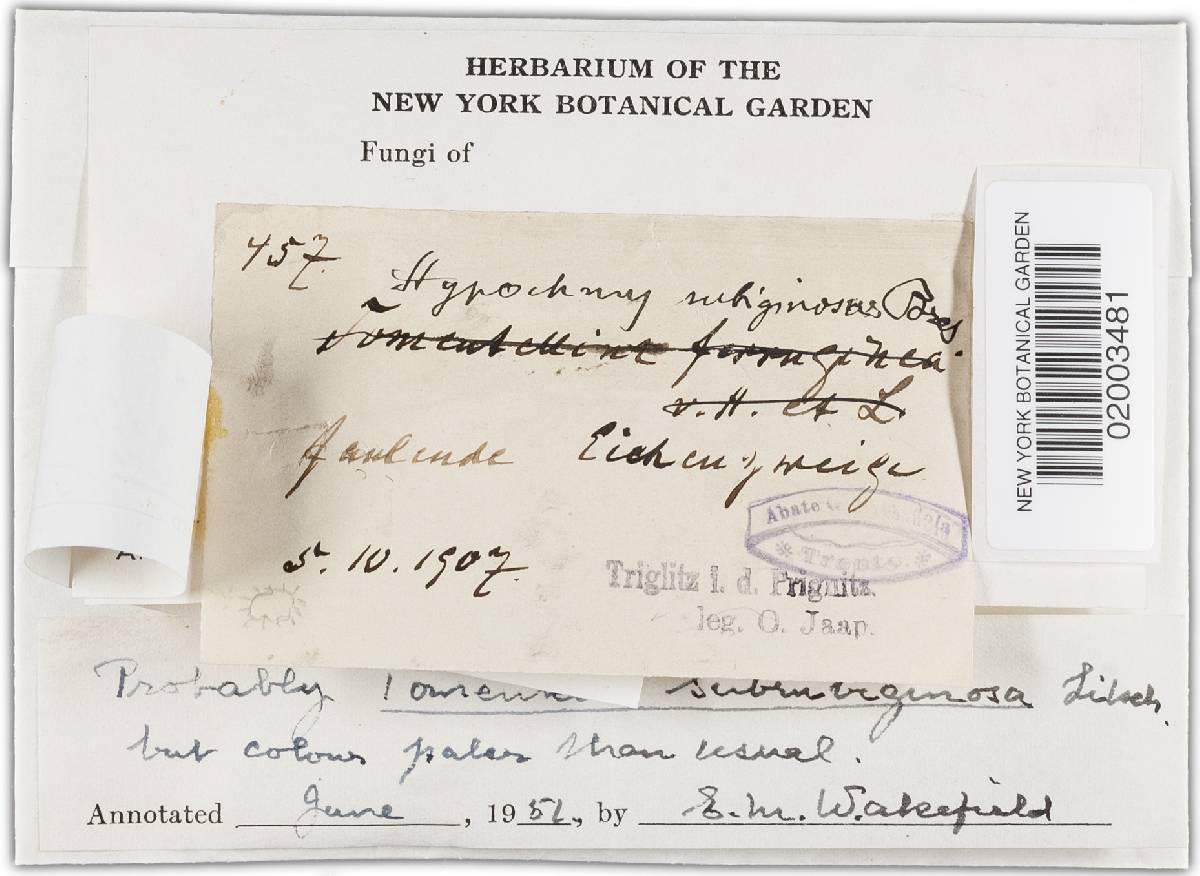 HERBARIUM OF THE
NEW YORK BOTANICAL GARDEN
Fungi of
457.
Hypochnus rubiginosus Bres.
Tomentellina ferruginea
v. H. et L
faulende Eichenzweige
Abate
Trento.
5. 10. 1907.
Triglitz i. d. Prignitz.
leg. O. Jaap.
NEW YORK BOTANICAL GARDEN
02003481
Probably subrubiginosa Litsch.
but colour paler than usual.
Annotated June, 195 by E. M. Wakefield